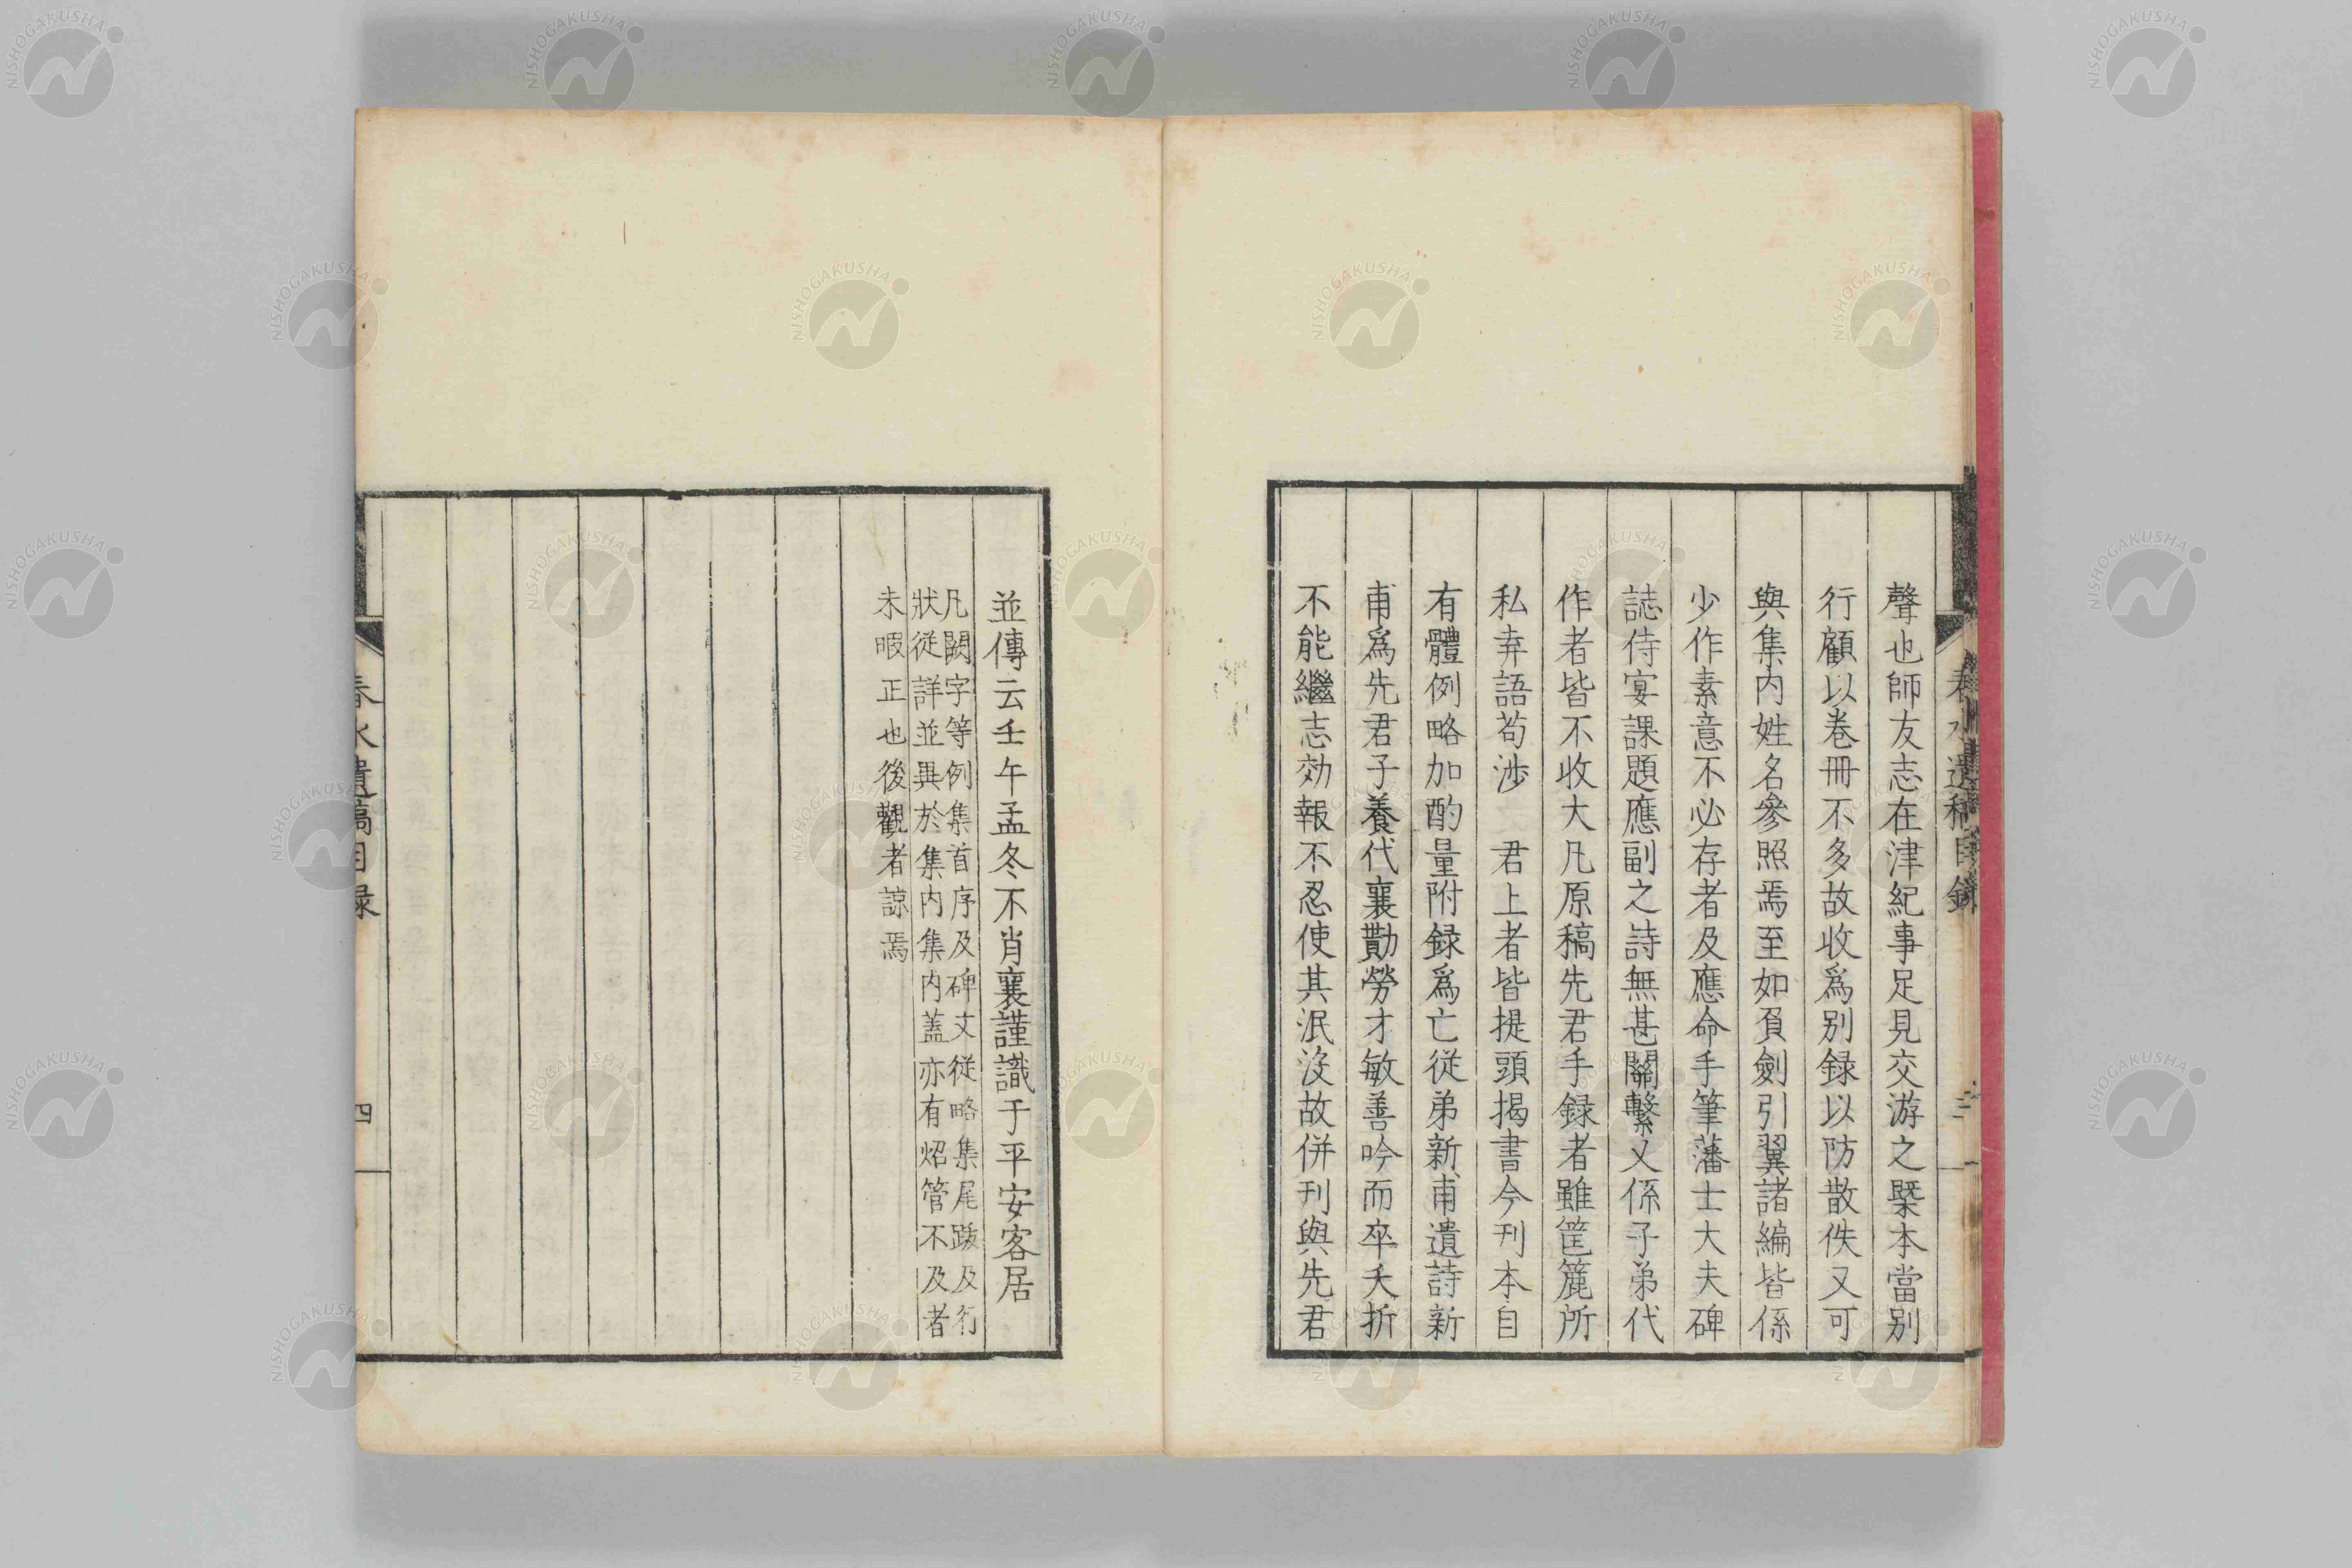 聲也師友志在津紀事足見交游之槩本當別
行顧以卷冊不多故收爲別録以防散佚又可
與集内姓名參照焉至如負劍引翼諸編皆係
少作素意不必存者及應命手筆藩士大夫碑
誌侍宴課題應副之詩無甚關繫又係子弟代
作者皆不收大凡原稿先君手録者雖筐簏所
私弆語苟渉　君上者皆提頭揭書今刊本自
有體例略加酌量附録爲亡從弟新甫遺詩新
甫爲先君子養代襄勩勞才敏善吟而卒夭折
不能繼志効報不忍使其泯没故併刊與先君
並傳云壬午孟冬不肖襄謹識于平安客居
凡闕字等例集首序及碑文從略集尾跋及行
狀從詳並異於集内集内蓋亦有炤管不及者
未暇正也後觀者諒焉
春水遺稿目録
三
春水遺稿目録
四
NISHOGAKUSHA